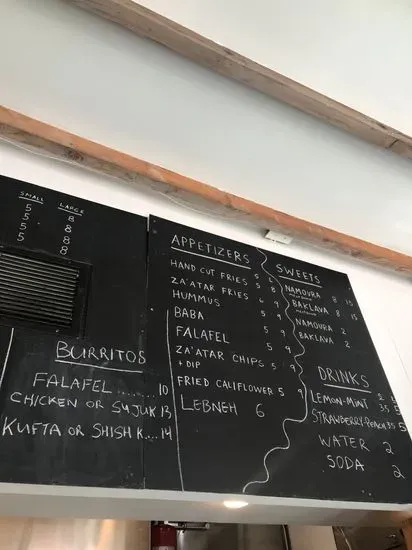 SMALL LARGE
5 8
5 8
5 8
5 8
BURRITOS
FALAFEL........10
CHICKEN OR SUJUK 13
KUFTA OR SHISH K....14
APPETIZERS
HAND CUT FRIES 5 8
ZA'ATAR FRIES 6 9
HUMMUS 5 9
BABA 5 9
FALAFEL 5 9
ZA'ATAR CHIPS 5 9
+ DIP
FRIED CALIFLOWER 5 9
LEBNEH 6
SWEETS
NAMOURA 8 15
BAKLAVA 8 15
NAMOURA 2
BAKLAVA 2
DRINKS
LEMON-MINT 35 5
STRAWBERRY-PEACH 35 5
WATER 2
SODA 2